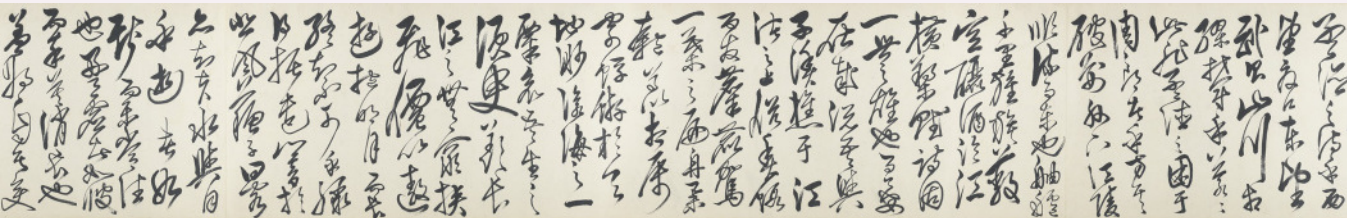 孟德之詩乎西
望夏口東望
武昌山川相
繆鬱乎蒼蒼
此非孟德之困于
周郎者乎方其
破荊州下江陵
順流而東也舳艫
千里旌旗蔽
空釃酒臨江
橫槊賦詩固
一世之雄也而今安
在哉況吾與
子漁樵于江
渚之上侶魚蝦
而友麋鹿駕
一葉之扁舟舉
匏樽以相屬
寄蜉蝣於天
地渺滄海之一
粟哀吾生之
須臾羨長
江之無窮挾
飛僊以遨
遊抱明月而長
終知不可乎驟
得託遺響於
悲風蘇子曰客
亦知夫水與月
乎逝者如
斯而未嘗往
也盈虛者如彼
而卒莫消長也
蓋將自其變